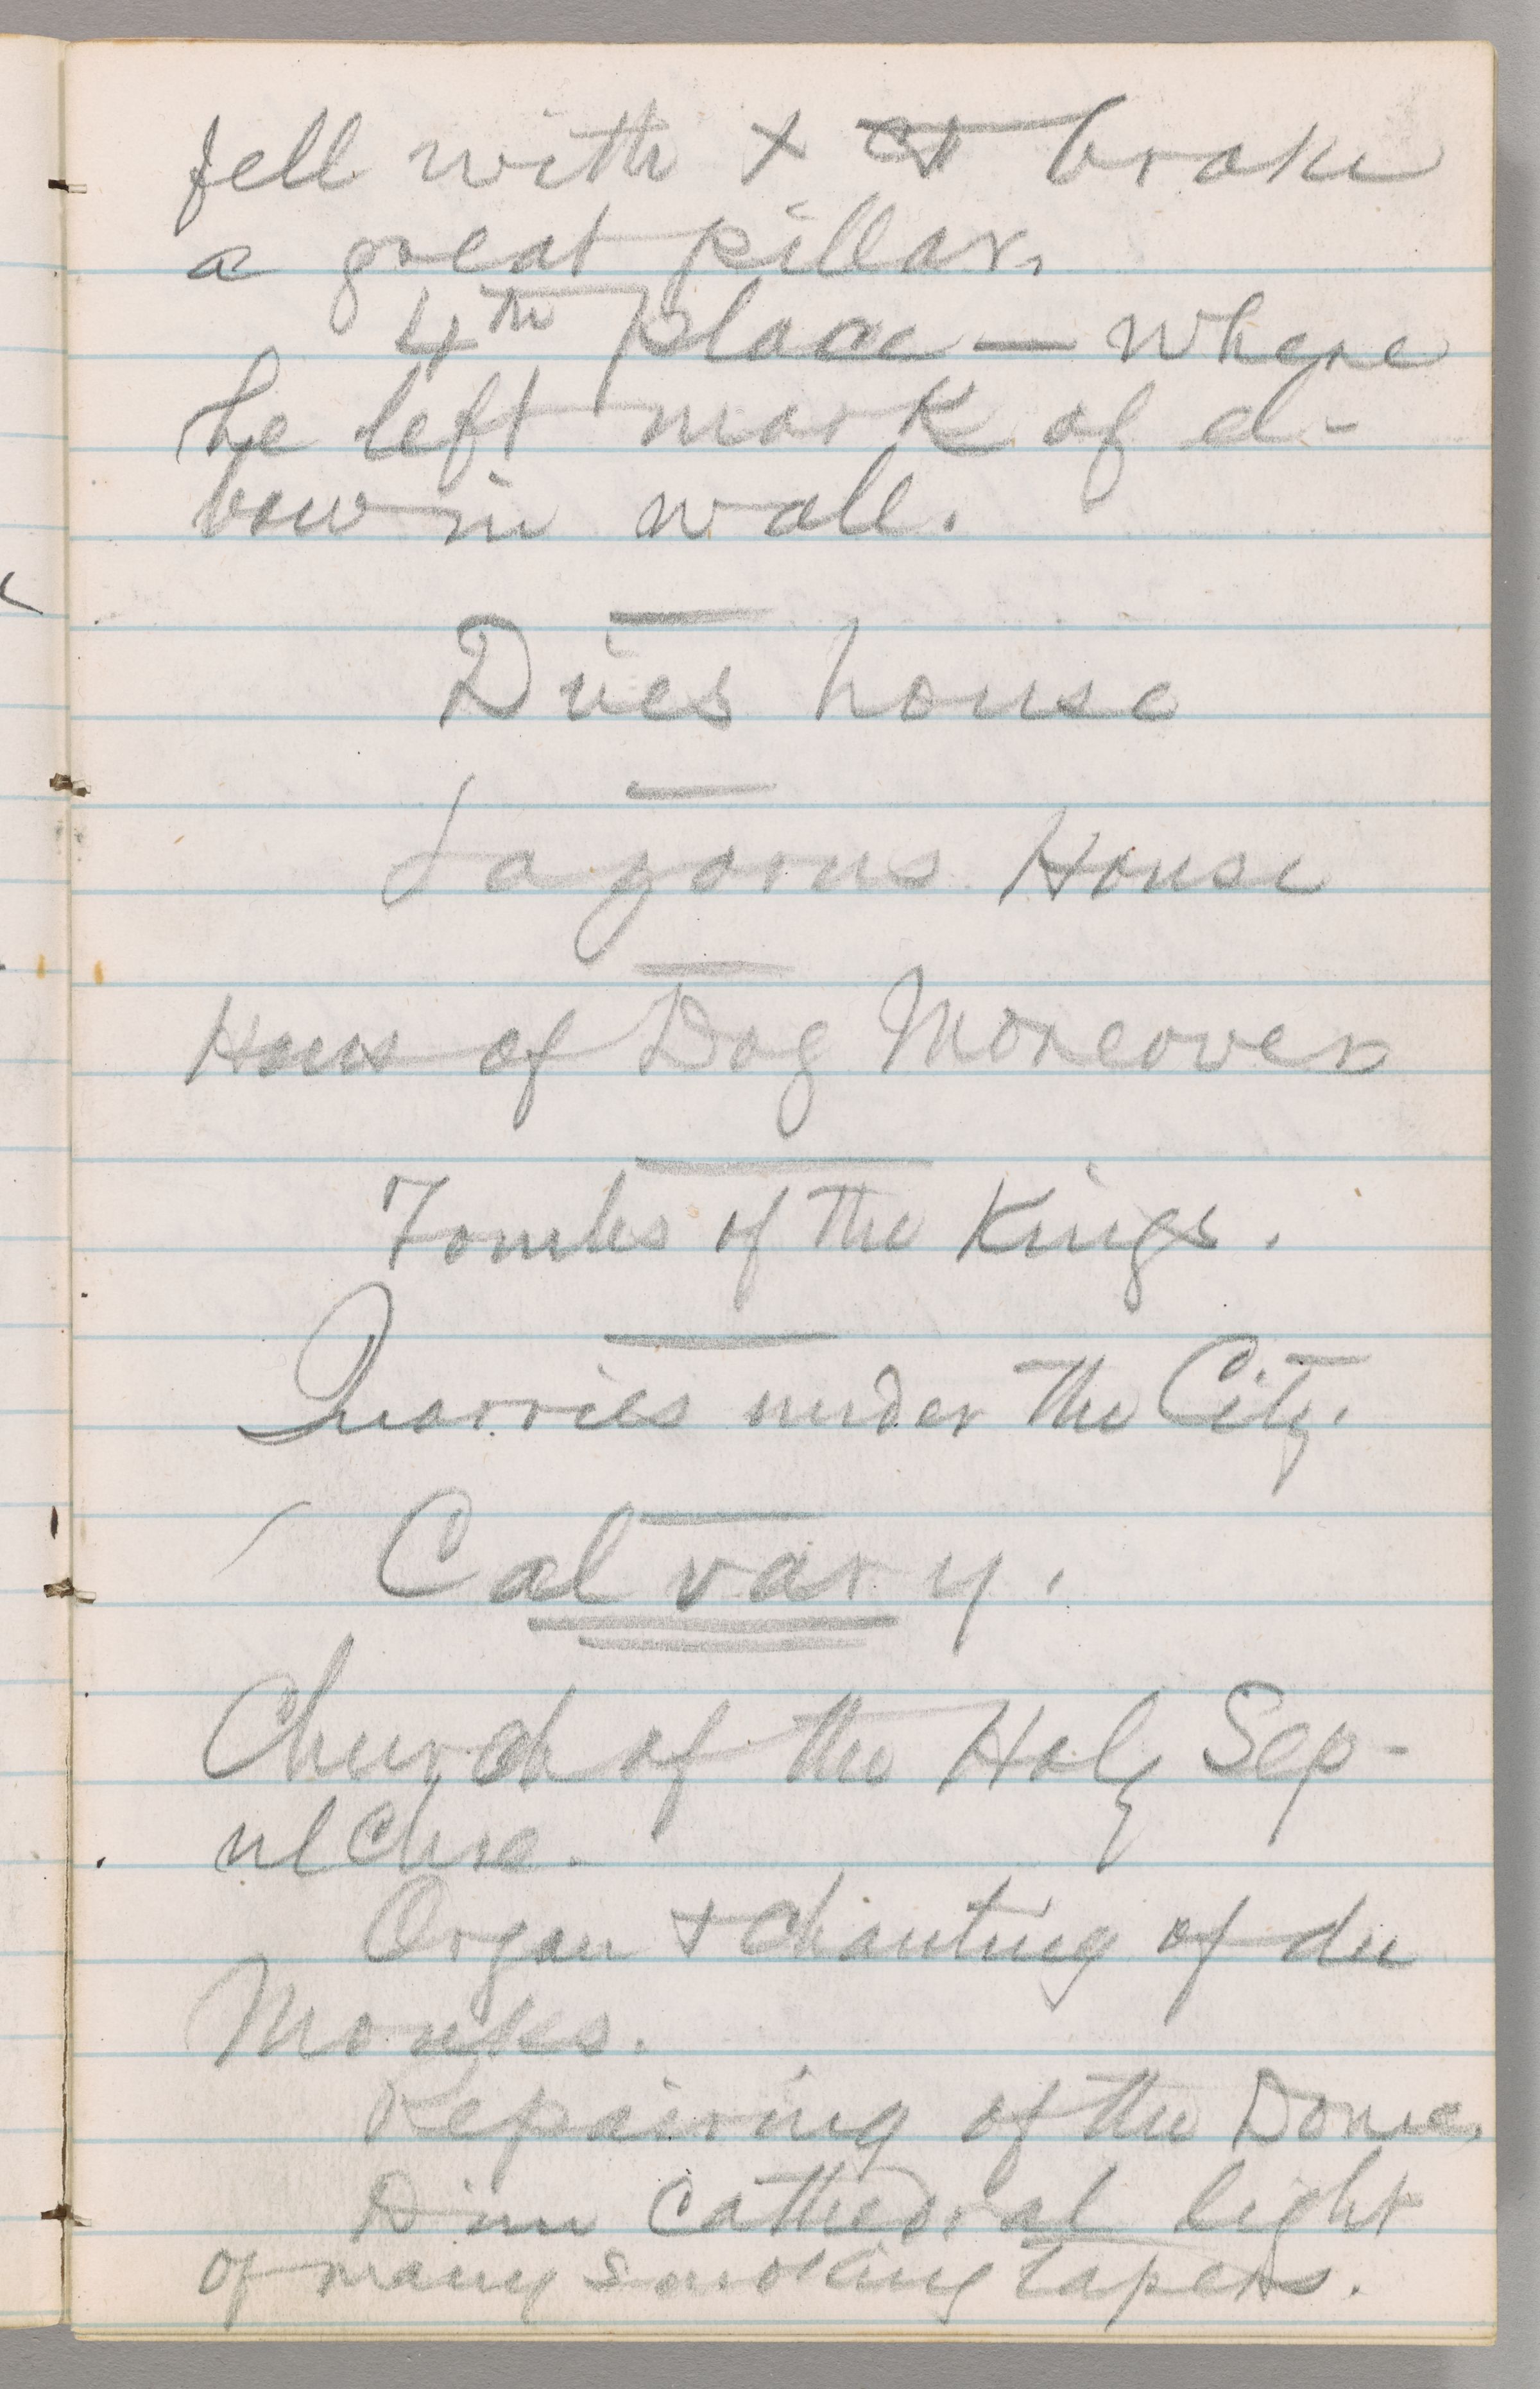 fell with + broke
a great pillar.
4th place — where
he left mark of el-
bow in wall.
Dives house
Lazarus House
Hous of Dog Moreover
Tombs of the Kings.
Quarries under the City.
Calvary.
Church of the Holy Sep-
ulchre.
Organ + chanting of du
Monks.
Repairing of the Dome.
Dim Cathedral light
of many smoking tapers.